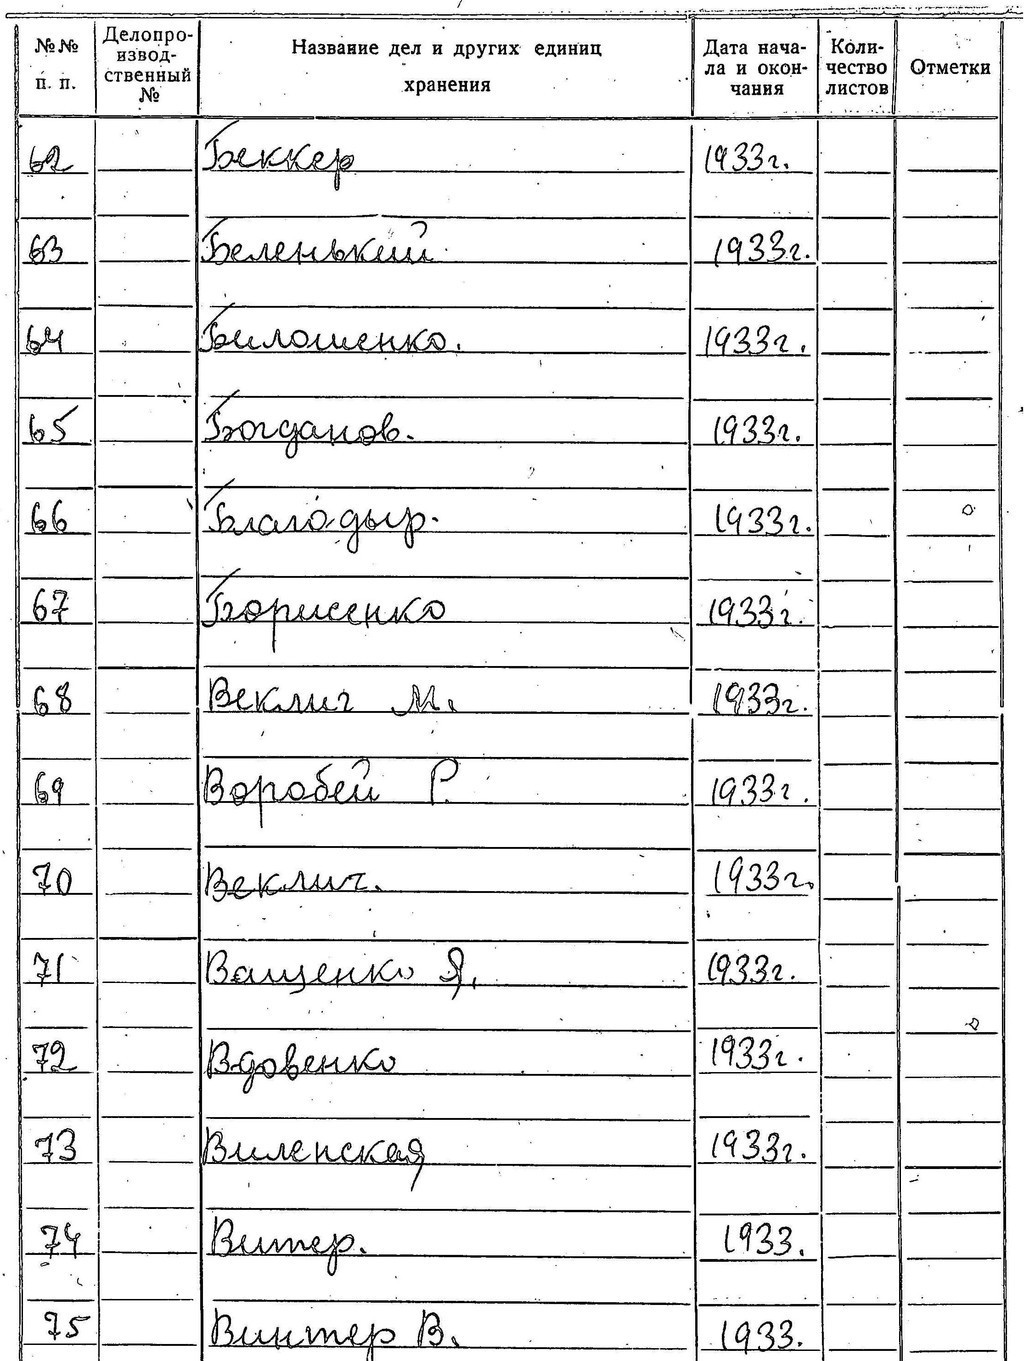 №№ п. п. Делопроизводственный № Название дел и других единиц хранения Дата начала и окончания Количество листов Отметки
62 Беккер 1933г.
63 Беленький 1933г.
64 Билошенко. 1933г.
65 Богданов. 1933г.
66 Благодыр. 1933г.
67 Борисенко 1933г.
68 Веклич М. 1933г.
69 Воробей Р. 1933г.
70 Веклич. 1933г.
71 Ващенко Я. 1933г.
72 Вдовенко 1933г.
73 Виленская 1933г.
74 Витер. 1933.
75 Винтер В. 1933.